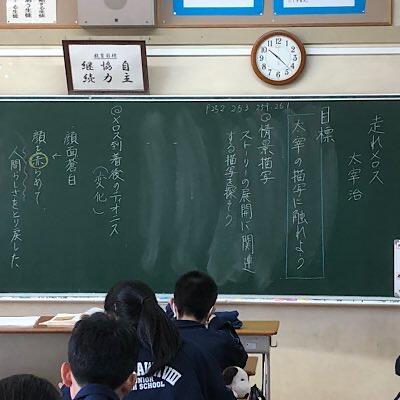 教育目標
自主
協力
継続
走れメロス
太宰治
目標
太宰の描写に触れよう
P252 253 259 261
◎情景描写
ストーリーの展開に関連
する描写を探そう
◎メロス到着後のディオニス
(変化)
顔面蒼白
↓
顔を赤らめて
人間らしさをとり戻した
JUNIOR
HIGH SCHOOL